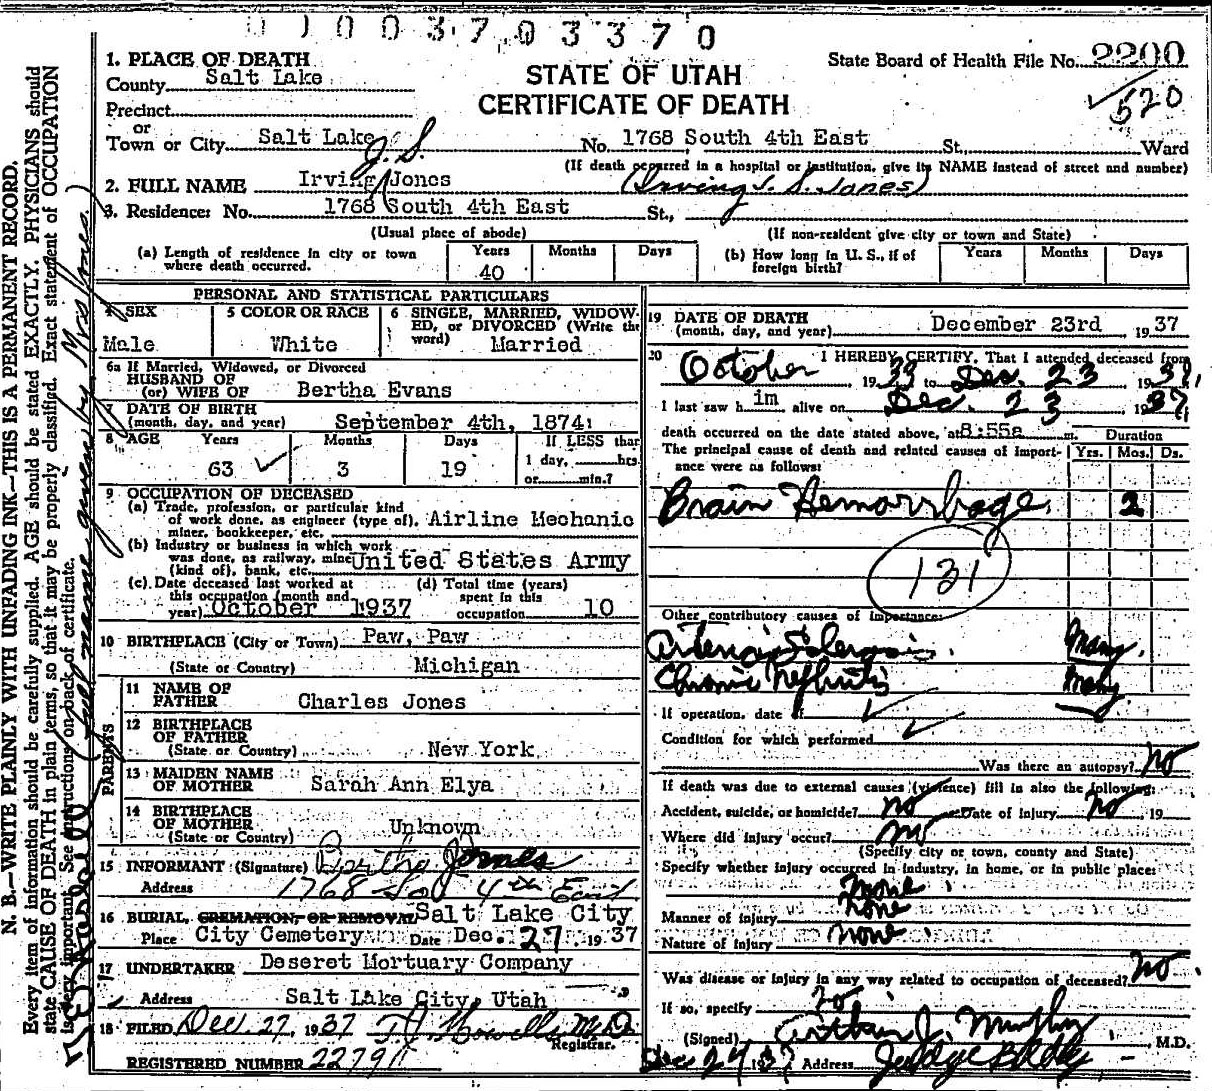 0 1 0 0 3 7 0 3 3 7 0
STATE OF UTAH
CERTIFICATE OF DEATH
State Board of Health File No. 2200
520
1. PLACE OF DEATH
County Salt Lake
Precinct
or
Town or City Salt Lake No. 1768 South 4th East St., Ward
(If death occurred in a hospital or institution, give its NAME instead of street and number)
J. S.
2. FULL NAME Irving Jones (Irving J. S. Jones)
3. Residence: No. 1768 South 4th East St.,
(Usual place of abode) (If non-resident give city or town and State)
(a) Length of residence in city or town where death occurred. Years 40 Months Days
(b) How long in U. S., if of foreign birth? Years Months Days
PERSONAL AND STATISTICAL PARTICULARS
4 SEX Male
5 COLOR OR RACE White
6 SINGLE, MARRIED, WIDOWED, or DIVORCED (Write the word) Married
6a If Married, Widowed, or Divorced
HUSBAND OF
(or) WIFE OF Bertha Evans
7 DATE OF BIRTH
(month, day, and year) September 4th, 1874
8 AGE Years 63 Months 3 Days 19 If LESS than 1 day, hrs. or min.?
9 OCCUPATION OF DECEASED
(a) Trade, profession, or particular kind
of work done, as engineer (type of), Airline Mechanic
miner, bookkeeper, etc.
(b) Industry or business in which work
was done, as railway, mine United States Army
(kind of), bank, etc.
(c) Date deceased last worked at
this occupation (month and
year) October 1937
(d) Total time (years)
spent in this
occupation 10
10 BIRTHPLACE (City or Town) Paw, Paw
(State or Country) Michigan
PARENTS
11 NAME OF
FATHER Charles Jones
12 BIRTHPLACE
OF FATHER
(State or Country) New York
13 MAIDEN NAME
OF MOTHER Sarah Ann Elya
14 BIRTHPLACE
OF MOTHER
(State or Country) Unknown
15 INFORMANT (Signature) Bertha Jones
Address 1768 So. 4th East
16 BURIAL, CREMATION, OR REMOVAL Salt Lake City
Place City Cemetery Date Dec. 27 1937
17 UNDERTAKER Deseret Mortuary Company
Address Salt Lake City, Utah
18 FILED Dec 27, 1937 T. J. Howells M.D.
Registrar.
REGISTERED NUMBER 2279
19 DATE OF DEATH
(month, day, and year) December 23rd 1937
20 I HEREBY CERTIFY, That I attended deceased from
October 19 to Dec. 23 1937,
I last saw him alive on Dec. 23 1937,
death occurred on the date stated above, at 8:55a m.
Duration
The principal cause of death and related causes of importance were as follows: Yrs. Mos. Ds.
Brain Hemorrhage 2
131
Other contributory causes of importance:
Arteriosclerosis Many
Chronic Nephritis Many
If operation, date of
Condition for which performed
Was there an autopsy? no
If death was due to external causes (violence) fill in also the following:
Accident, suicide, or homicide? no Date of injury no 19
Where did injury occur? no
(Specify city or town, county and State)
Specify whether injury occurred in industry, in home, or in public place:
none
Manner of injury none
Nature of injury none
Was disease or injury in any way related to occupation of deceased? no
If so, specify no
(Signed) J. Murphy M.D.
Dec 24 37 Address Judge Bldg
N. B.—WRITE PLAINLY WITH UNFADING INK—THIS IS A PERMANENT RECORD.
Every item of information should be carefully supplied. AGE should be stated EXACTLY. PHYSICIANS should
state CAUSE OF DEATH in plain terms, so that it may be properly classified. Exact statement of OCCUPATION
is very important. See instructions on back of certificate.
(full name given by Mrs Jones.)